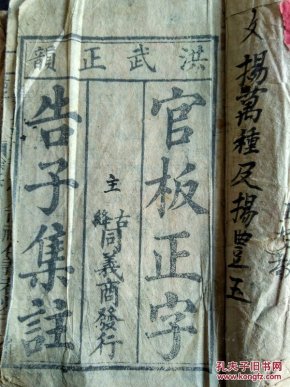 洪武正韻
官板正字
古絳
主
同義商發行
告子集註
文
揚萬種足揚豊五
孔夫子旧书网